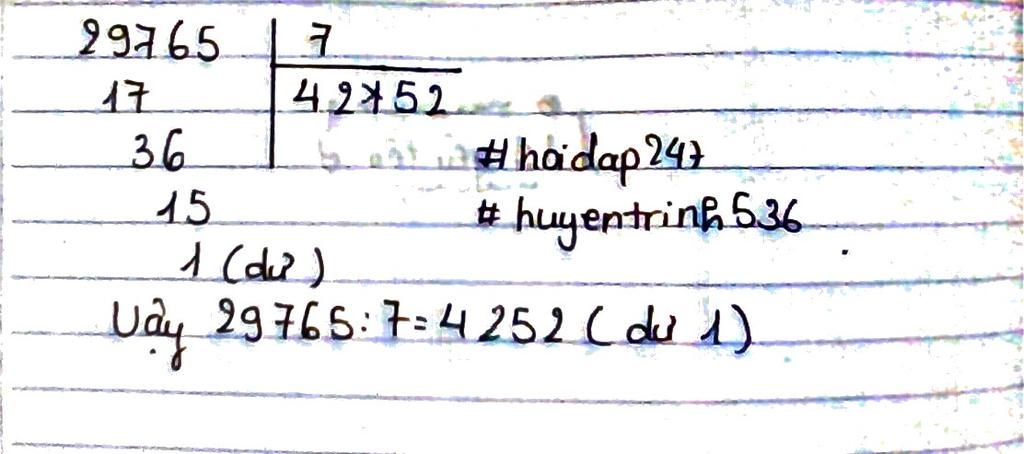 29765 7
17 42752
36 #hoidap247
15 #huyentrinh536
1 (dư)
Vậy 29765:7=4252 (dư 1)